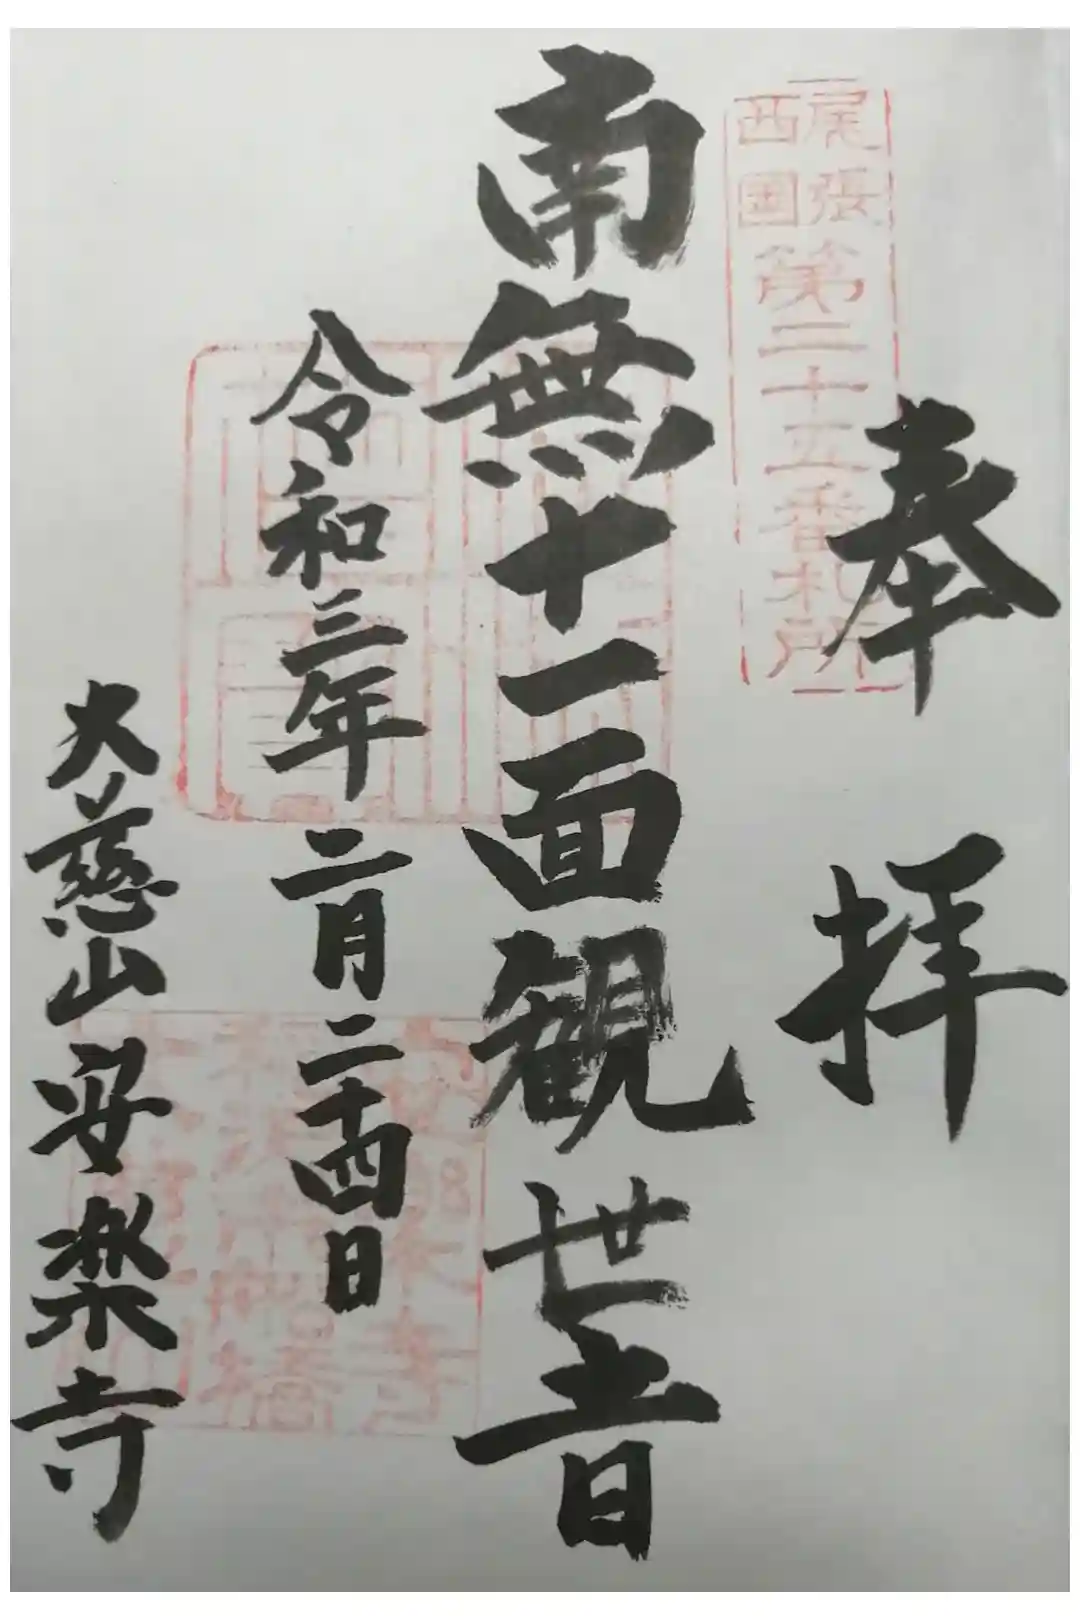 奉拝
尾張
西國
第二十五番札所
南無十一面観世音
令和三年二月二十四日
大慈山安楽寺